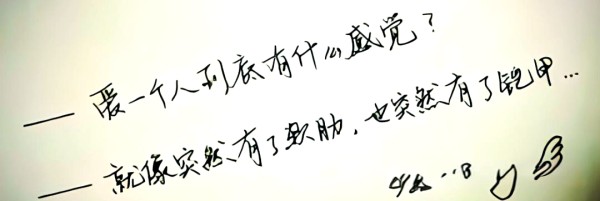 —— 爱一个人到底有什么感觉?
—— 就像突然有了软肋,也突然有了铠甲...